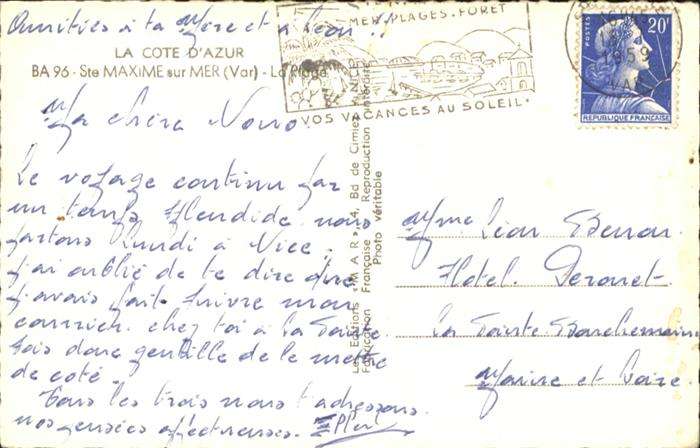 Amitiés à ta Mère et à Léon !!
LA COTE D'AZUR
BA 96 - Ste MAXIME sur MER (Var) - La Plage
MER, PLAGES, FORET
VOS VACANCES AU SOLEIL
20F
POSTES
1959
VAR
REPUBLIQUE FRANÇAISE
Ma chère Nono
Le voyage continu par
un temps splendide. nous
partons lundi à Nice.
j'ai oublié de te dire que
j'avais fait suivre mon
courrier chez toi à la
sois donc gentille de le mettre
de côté.
Tous les trois nous t'adressons
nos pensées affectueuses.
Les Editions "MAR", 4, Bd de Cimiez, NICE
Fabrication Française Reproduction Interdite
Photo véritable
Mme Léon
Hotel
La Sainte
Marine et Loire.